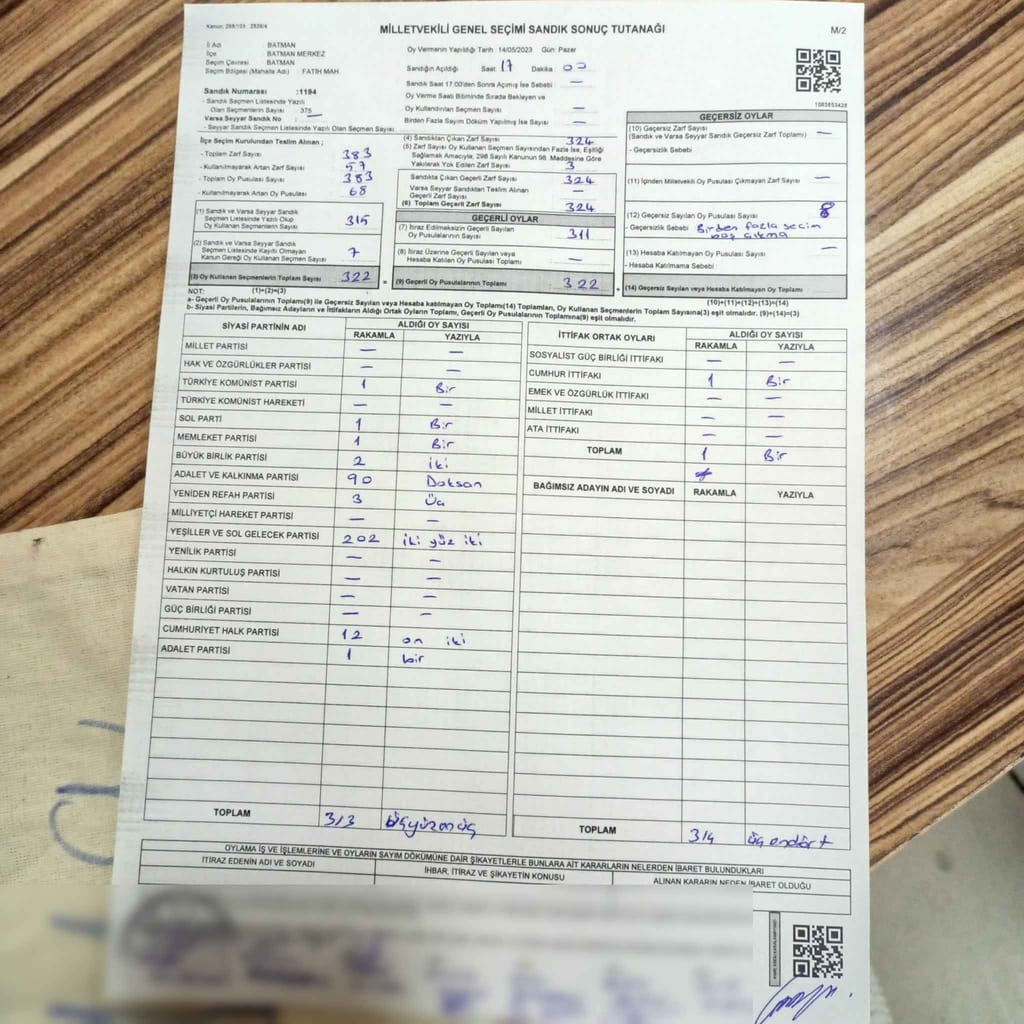 Kanun: 298/105 2839/4
MİLLETVEKİLİ GENEL SEÇİMİ SANDIK SONUÇ TUTANAĞI
M/2
İl Adı BATMAN
İlçe BATMAN MERKEZ
Seçim Çevresi BATMAN
Seçim Bölgesi (Mahalle Adı) FATİH MAH
Sandık Numarası :1194
- Sandık Seçmen Listesinde Yazılı
Olan Seçmenlerin Sayısı 375
Varsa Seyyar Sandık No : —
- Seyyar Sandık Seçmen Listesinde Yazılı Olan Seçmen Sayısı
Oy Vermenin Yapıldığı Tarih 14/05/2023 Gün: Pazar
Sandığın Açıldığı Saat 17 Dakika 00
Sandık Saat 17:00'den Sonra Açılmış İse Sebebi —
Oy Verme Saati Bitiminde Sırada Bekleyen ve
Oy Kullandırılan Seçmen Sayısı —
Birden Fazla Sayım Döküm Yapılmış İse Sayısı —
1083853428
İlçe Seçim Kurulundan Teslim Alınan ;
- Toplam Zarf Sayısı 383
- Kullanılmayarak Artan Zarf Sayısı 57
- Toplam Oy Pusulası Sayısı 383
- Kullanılmayarak Artan Oy Pusulası 68
(1) Sandık ve Varsa Seyyar Sandık
Seçmen Listesinde Yazılı Olup
Oy Kullanan Seçmenlerin Sayısı 315
(2) Sandık ve Varsa Seyyar Sandık
Seçmen Listesinde Kayıtlı Olmayan
Kanun Gereği Oy Kullanan Seçmen Sayısı 7
(3) Oy Kullanan Seçmenlerin Toplam Sayısı 322
(4) Sandıktan Çıkan Zarf Sayısı 324
(5) Zarf Sayısı Oy Kullanan Seçmen Sayısından Fazla İse, Eşitliği
Sağlamak Amacıyla, 298 Sayılı Kanunun 98. Maddesine Göre
Yakılarak Yok Edilen Zarf Sayısı 3
Sandıkta Çıkan Geçerli Zarf Sayısı 324
Varsa Seyyar Sandıktan Teslim Alınan
Geçerli Zarf Sayısı —
(6) Toplam Geçerli Zarf Sayısı 324
GEÇERLİ OYLAR
(7) İtiraz Edilmeksizin Geçerli Sayılan
Oy Pusulalarının Sayısı 311
(8) İtiraz Üzerine Geçerli Sayılan veya
Hesaba Katılan Oy Pusulası Toplamı —
= (9) Geçerli Oy Pusulalarının Toplamı 322
GEÇERSİZ OYLAR
(10) Geçersiz Zarf Sayısı
(Sandık ve Varsa Seyyar Sandık Geçersiz Zarf Toplamı) —
- Geçersizlik Sebebi
(11) İçinden Milletvekili Oy Pusulası Çıkmayan Zarf Sayısı —
(12) Geçersiz Sayılan Oy Pusulası Sayısı 8
- Geçersizlik Sebebi Birden fazla seçim
boş çıkma
(13) Hesaba Katılmayan Oy Pusulası Sayısı —
- Hesaba Katılmama Sebebi
+ (14) Geçersiz Sayılan veya Hesaba Katılmayan Oy Toplamı
NOT: (1)+(2)=(3)
(10)+(11)+(12)+(13)=(14)
a- Geçerli Oy Pusulalarının Toplamı(9) ile Geçersiz Sayılan veya Hesaba katılmayan Oy Toplamı(14) Toplamları, Oy Kullanan Seçmenlerin Toplam Sayısına(3) eşit olmalıdır. (9)+(14)=(3)
b- Siyasi Partilerin, Bağımsız Adayların ve İttifakların Aldığı Ortak Oyların Toplamı, Geçerli Oy Pusulalarının Toplamına(9) eşit olmalıdır.
SİYASİ PARTİNİN ADI ALDIĞI OY SAYISI
RAKAMLA YAZIYLA
MİLLET PARTİSİ — —
HAK VE ÖZGÜRLÜKLER PARTİSİ — —
TÜRKİYE KOMÜNİST PARTİSİ 1 Bir
TÜRKİYE KOMÜNİST HAREKETİ — —
SOL PARTİ 1 Bir
MEMLEKET PARTİSİ 1 Bir
BÜYÜK BİRLİK PARTİSİ 2 iki
ADALET VE KALKINMA PARTİSİ 90 Doksan
YENİDEN REFAH PARTİSİ 3 Üç
MİLLİYETÇİ HAREKET PARTİSİ — —
YEŞİLLER VE SOL GELECEK PARTİSİ 202 iki yüz iki
YENİLİK PARTİSİ — —
HALKIN KURTULUŞ PARTİSİ — —
VATAN PARTİSİ — —
GÜÇ BİRLİĞİ PARTİSİ — —
CUMHURİYET HALK PARTİSİ 12 on iki
ADALET PARTİSİ 1 bir
TOPLAM 313 üçyüzonüç
İTTİFAK ORTAK OYLARI ALDIĞI OY SAYISI
RAKAMLA YAZIYLA
SOSYALİST GÜÇ BİRLİĞİ İTTİFAKI — —
CUMHUR İTTİFAKI 1 Bir
EMEK VE ÖZGÜRLÜK İTTİFAKI — —
MİLLET İTTİFAKI — —
ATA İTTİFAKI — —
TOPLAM 1 Bir
BAĞIMSIZ ADAYIN ADI VE SOYADI RAKAMLA YAZIYLA
TOPLAM 314 üçondört
OYLAMA İŞ VE İŞLEMLERİNE VE OYLARIN SAYIM DÖKÜMÜNE DAİR ŞİKAYETLERLE BUNLARA AİT KARARLARIN NELERDEN İBARET BULUNDUKLARI
İTİRAZ EDENİN ADI VE SOYADI İHBAR, İTİRAZ VE ŞİKAYETİN KONUSU ALINAN KARARIN NEDEN İBARET OLDUĞU